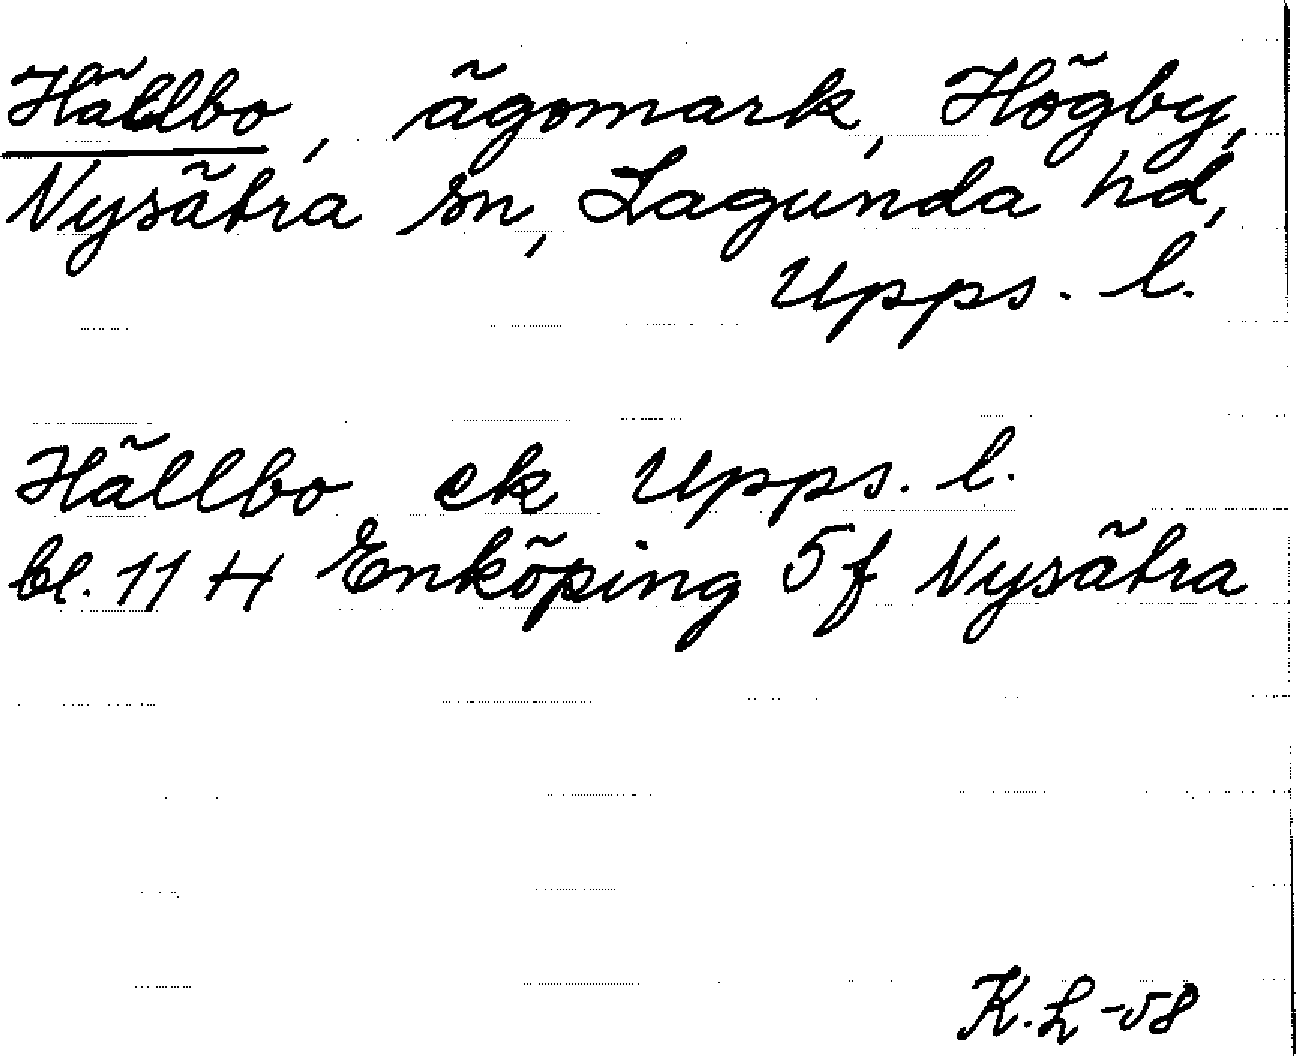 Hällbo, ägomark, Högby,
Nysätra sn, Lagunda hd,
Upps. l.
Hällbo ek Upps. l.
bl. 11 H Enköping 5f Nysätra
K.L-58